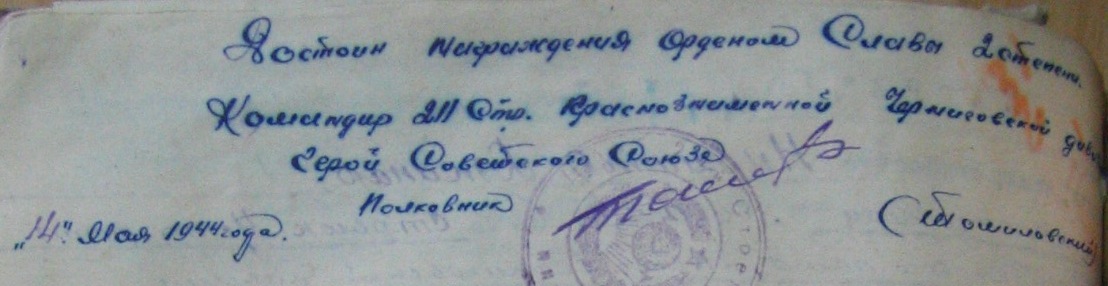 Достоин награждения Орденом Славы 2 степени.
Командир 211 Стр. Краснознаменной Черниговской диви
Герой Советского Союза
Полковник (Томиловский)
„14" Мая 1944 года.